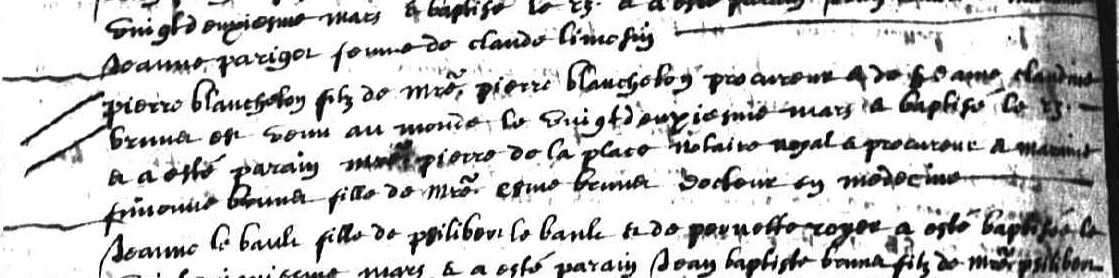 vingtdeuxiesme mars & baptisé le 23. & a esté parain
Jeanne parigot femme de claude limosin
pierre blancheton filz de Mre. pierre blancheton procureur & de dame claudine
brunet est venu au monde le vingtdeuxiesme mars & baptisé le 23.
& a esté parain pierre de la place notaire royal & procureur & maraine
brunet fille de Mre. esme brunet docteur en medecine
Jeanne le bault fille de philibert le bault & de pernette royer a esté baptisée le
mars & a esté parain Jean baptiste brunet filz de Mre. philibert